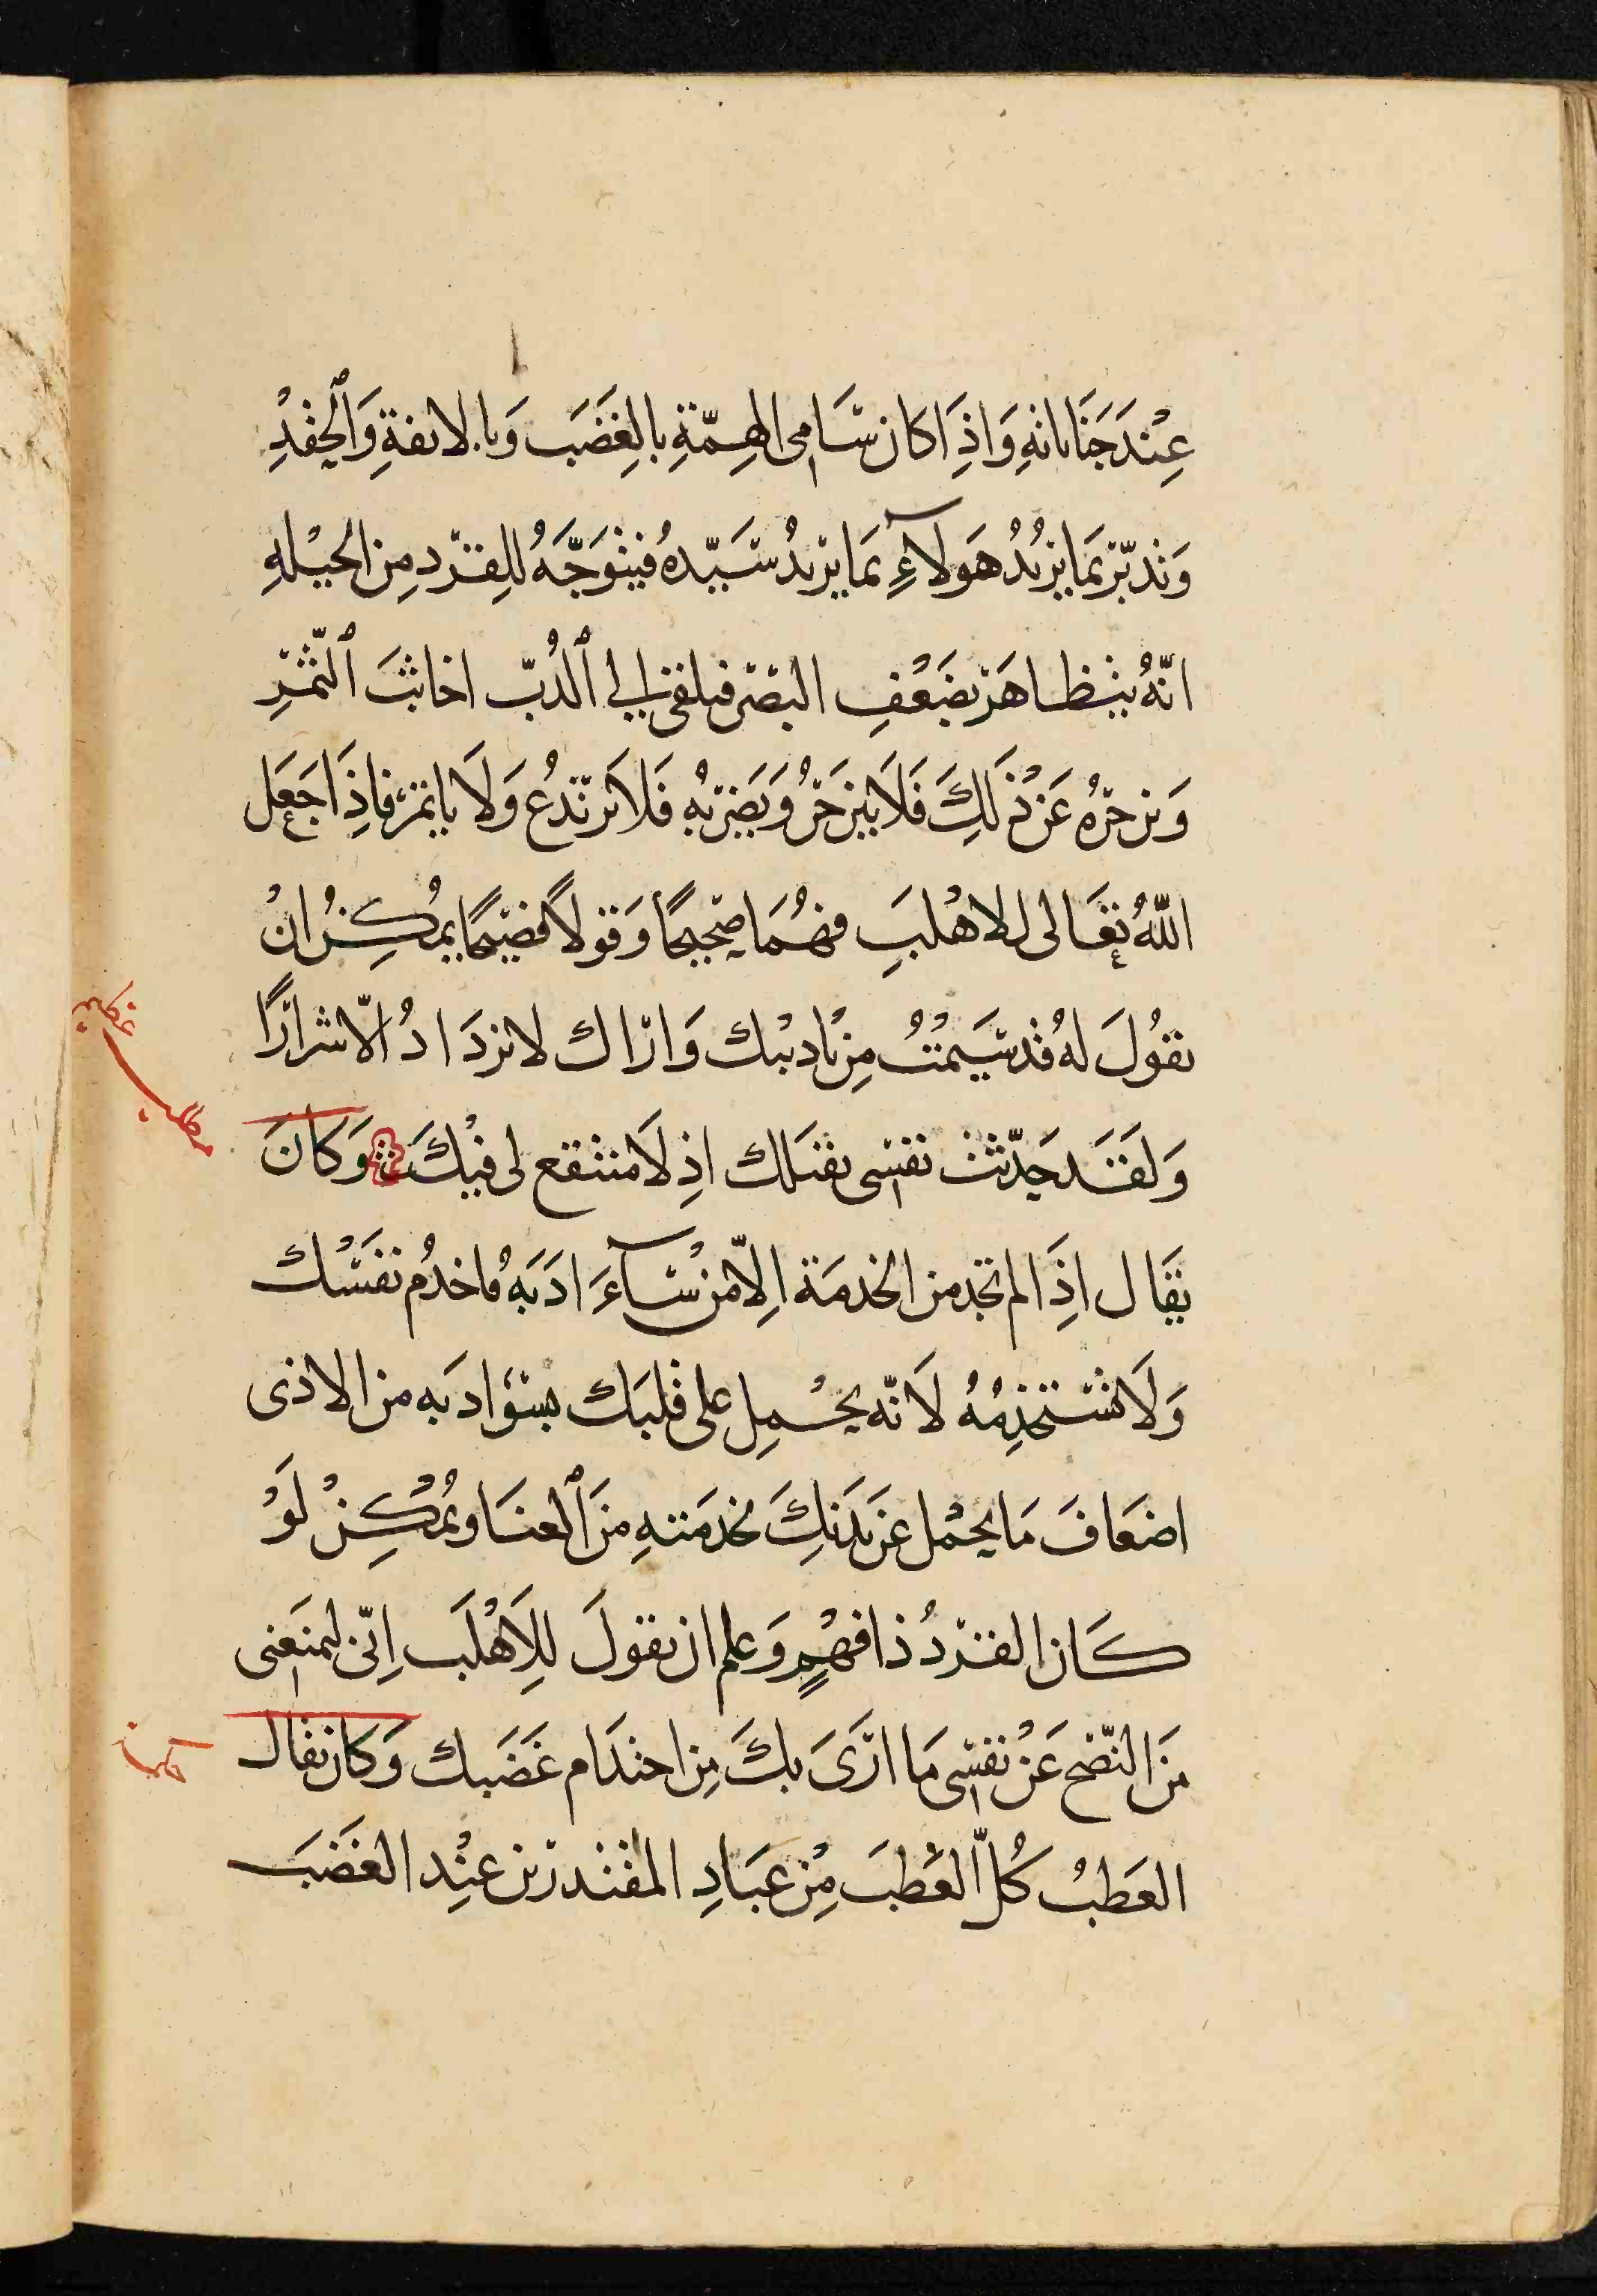 عِنْدَ جَنَاياته وَاذَا كان سَامى الهِمّةِ بالغَضَب وَبالانفةِ وَالحِقْدِ
وَتدبّر بمَا يُريدُ هَولآءِ بمَا يريدُ سَيّدهُ فيتوَجّهُ للقِرد مِن الحيْلهِ
انّهُ يتظاهَر بضَعْفِ البصَر فيلقى الى الدُبّ اخابثَ الثّمرِ
وَيزجرهُ عَن ذلِكَ فَلا ينزَجرُ وَيَضربهُ فَلا يَرتدعُ وَلَا ياتمر فاذَا جَعَل
اللّهُ تعَالى للاهْلبِ فهْمًا صَحيحًا وَقولاً فصيحًا يمُكِنُ انْ
يقُولَ لهُ قد سَيمْتُ مِن تاديبْك وَارَاك لا تزدَادُ الّا شرارًا
وَلقَد حَدّثت نفسِى بقتلك اذِ لَا منتفع لى فيْكَ وَكانَ
يقَال اذَا لم تجد من الخدمَة اِلّا من سْآءَ ادَبَهُ فاخدُم نفسَْك
وَلَا تسْتخدِمْهُ لَانّه يحْمِل على قلبَك بسُوء ادَبه من الاذى
اضعَافَ مَا يحْمل عَن بَدَنكَ بخدمَتهِ مِنَ العنَا ويمُْكِنْ لَوْ
كَان القردُ ذا فهْمٍ وَعلم ان يقولَ للِاَهْلَب اِنّى ليمنَعنى
مِنَ النّضح عَنْ نفسى مَا ارَىَ بكَ مِن احتدَام غَضَبك وَكان يقال
العَطبُ كُلّ العَطبَ مِن عبَادِ المقتدرين عنِْد الغَضَبَ